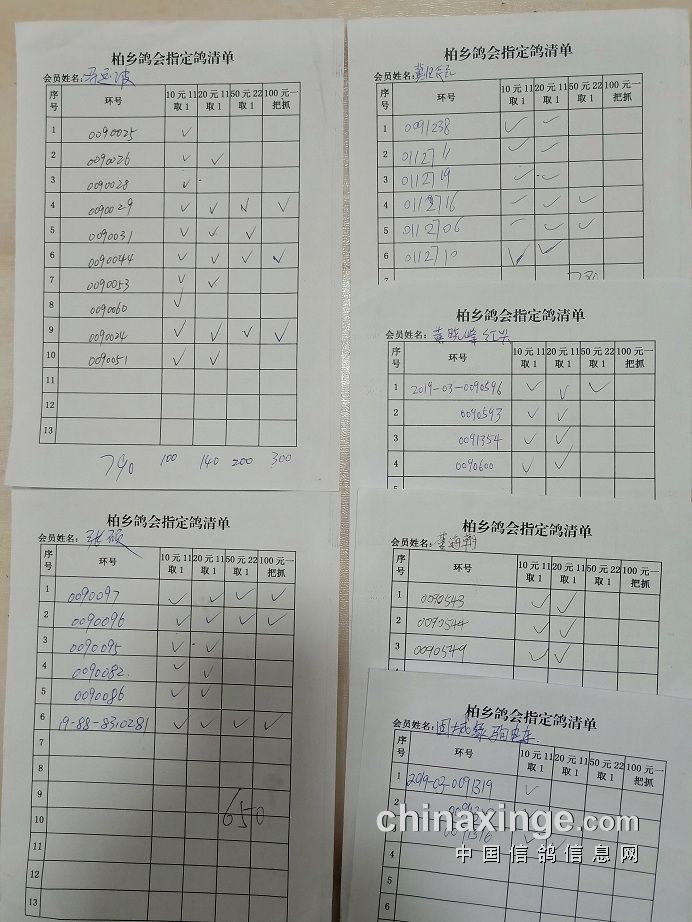 柏乡鸽会指定鸽清单
会员姓名:
序号 环号 10元11取1 20元11取1 50元22取1 100元一把抓
1 0090025 ✓
2 0090026 ✓ ✓
3 0090028 ✓
4 0090029 ✓ ✓ ✓ ✓
5 0090031 ✓ ✓ ✓
6 0090044 ✓ ✓ ✓ ✓
7 0090053 ✓ ✓
8 0090060 ✓
9 0090024 ✓ ✓ ✓ ✓
10 0090051 ✓ ✓
11
12
13
740 100 140 200 300
柏乡鸽会指定鸽清单
会员姓名:
序号 环号 10元11取1 20元11取1 50元22取1 100元一把抓
1 0091238 ✓ ✓
2 0112711 ✓ ✓
3 0112719 ✓ ✓
4 0112716 ✓ ✓ ✓
5 0112706 ✓ ✓ ✓
6 0112710 ✓ ✓
柏乡鸽会指定鸽清单
会员姓名: 黄晓峰
序号 环号 10元11取1 20元11取1 50元22取1 100元一把抓
1 2019-03-0090596 ✓ ✓ ✓
2 0090593 ✓ ✓
3 0091354 ✓ ✓
4 0090600 ✓ ✓
柏乡鸽会指定鸽清单
会员姓名: 张硕
序号 环号 10元11取1 20元11取1 50元22取1 100元一把抓
1 0090097 ✓ ✓ ✓ ✓
2 0090096 ✓ ✓ ✓ ✓
3 0090095 ✓ ✓
4 0090082. ✓ ✓
5 0090086 ✓ ✓
6 19-88-8310281 ✓ ✓ ✓ ✓
7
8
9
10
650
11
12
13
柏乡鸽会指定鸽清单
会员姓名:
序号 环号 10元11取1 20元11取1 50元22取1 100元一把抓
1 0090543 ✓ ✓
2 0090544 ✓ ✓
3 0090549 ✓ ✓
柏乡鸽会指定鸽清单
会员姓名: 固城
序号 环号 10元11取1 20元11取1 50元22取1 100元一把抓
1 2019-03-0091319 ✓
2
3
4
5
6
chinaxinge.com
中国信鸽信息网